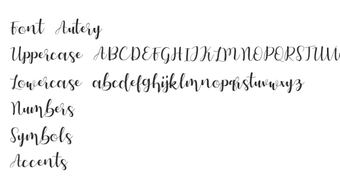 Font Autery
Uppercase ABCDEFGHIJKLMNOPQRSTUV
Lowercase abcdefghijklmnopqrstuvwxyz
Numbers
Symbols
Accents